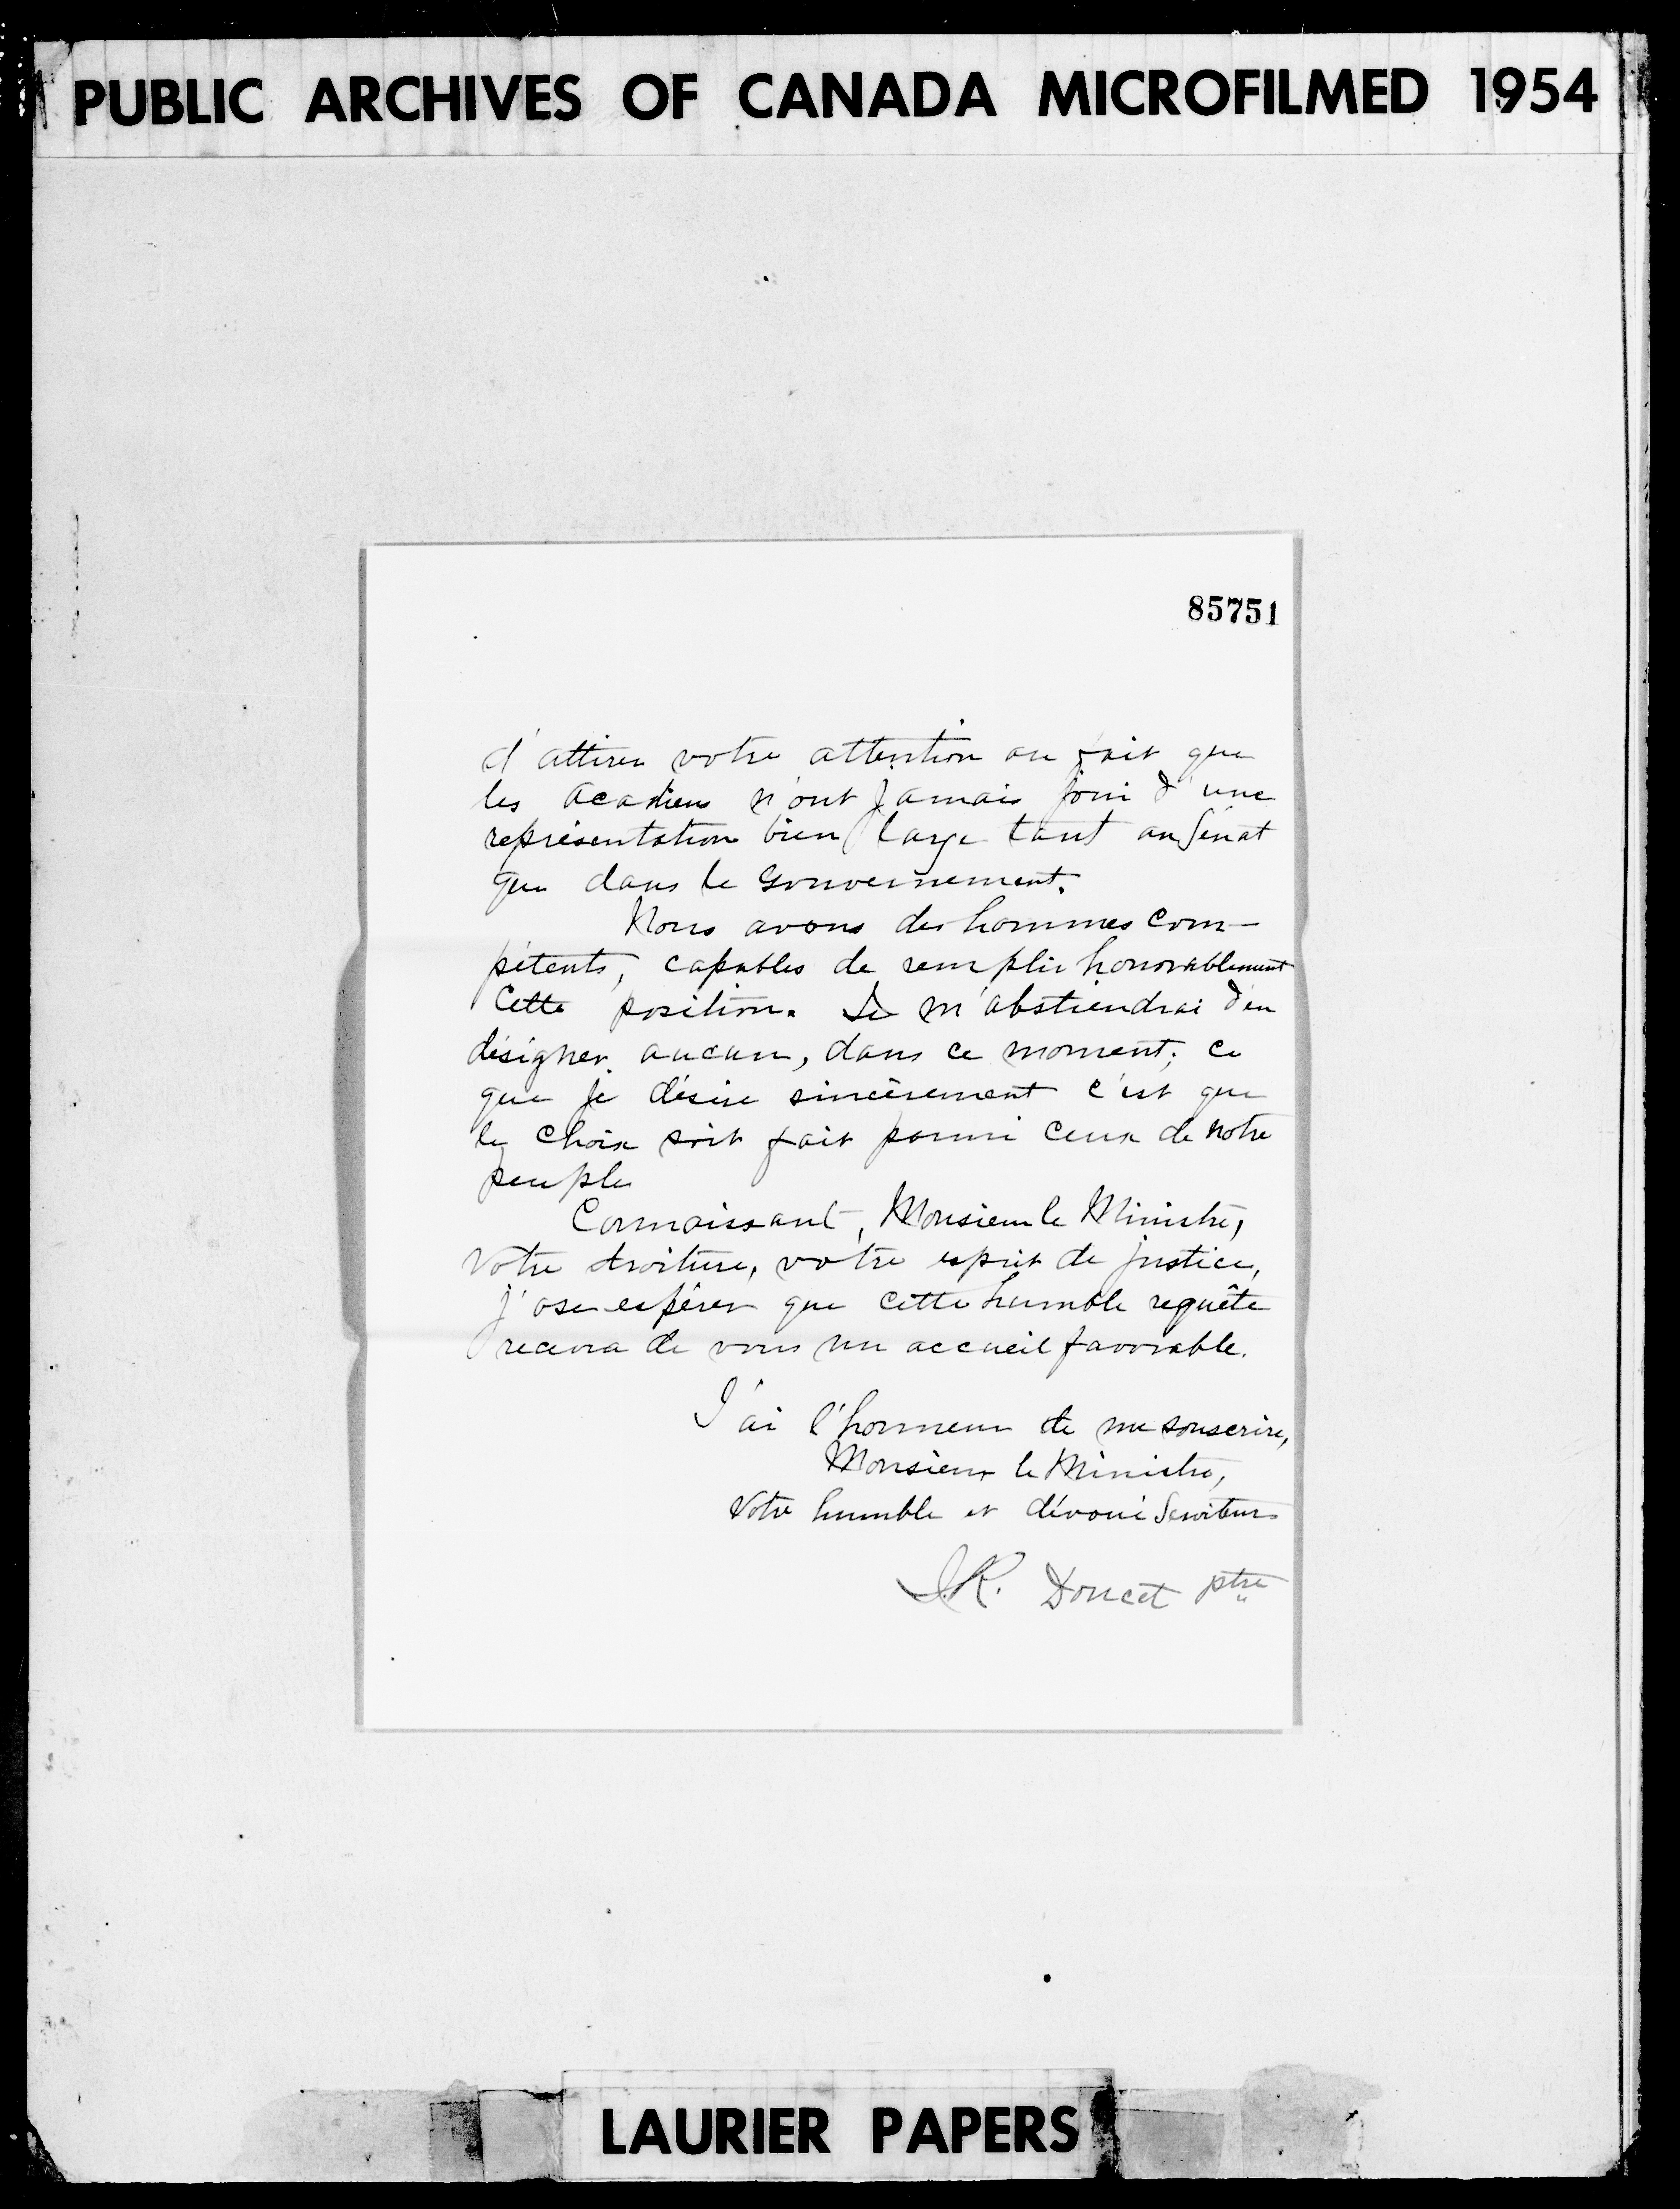 PUBLIC ARCHIVES OF CANADA MICROFILMED 1954
85751
d'attirer votre attention au fait que
les Acadiens n'ont jamais joui d'une
représentation bien large tant au Sénat
que dans le Gouvernement.
Nous avons des hommes com-
pétents, capables de remplir honorablement
cette position. Je m'abstiendrai d'en
désigner aucun, dans ce moment; ce
que je désire sincèrement c'est que
le choix soit fait parmi ceux de notre
peuple
Connaissant, Monsieur le Ministre,
votre droiture, votre esprit de justice,
j'ose espérer que cette humble requête
recevra de vous un accueil favorable.
J'ai l'honneur de me souscrire,
Monsieur le Ministre,
Votre humble et dévoué Serviteur
J.R. Doucet ptre
LAURIER PAPERS